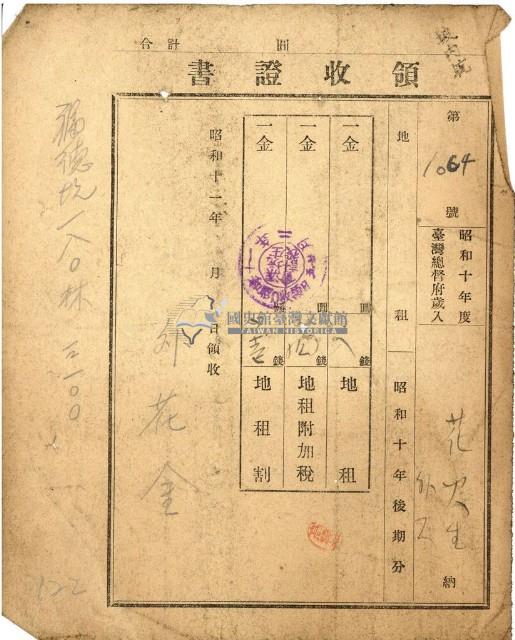 合計 圓
領收證書
第 1064 號
昭和十年度
臺灣總督府歲入
地租
昭和十年後期分
花 火生
外 納
一金 圓 八錢 地租
一金 圓 錢 地租附加稅
一金 圓 錢 地租割
昭和十一年 月 日領收
花金
福德坑一八〇林
122
國史館臺灣文獻館
TAIWAN HISTORICA